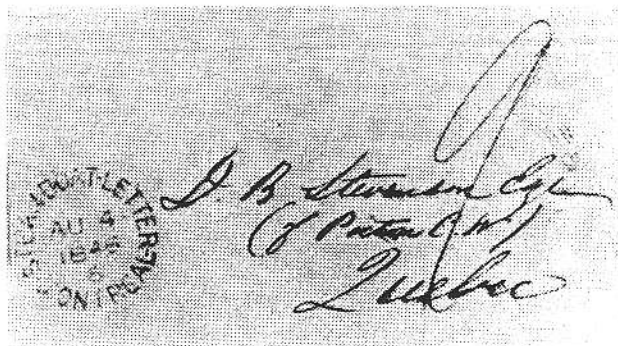 STEAMBOAT-LETTER
AU 4
1846
MONTREAL
9
D. B. Stevenson Esqr
(of Picton C. W.)
Quebec